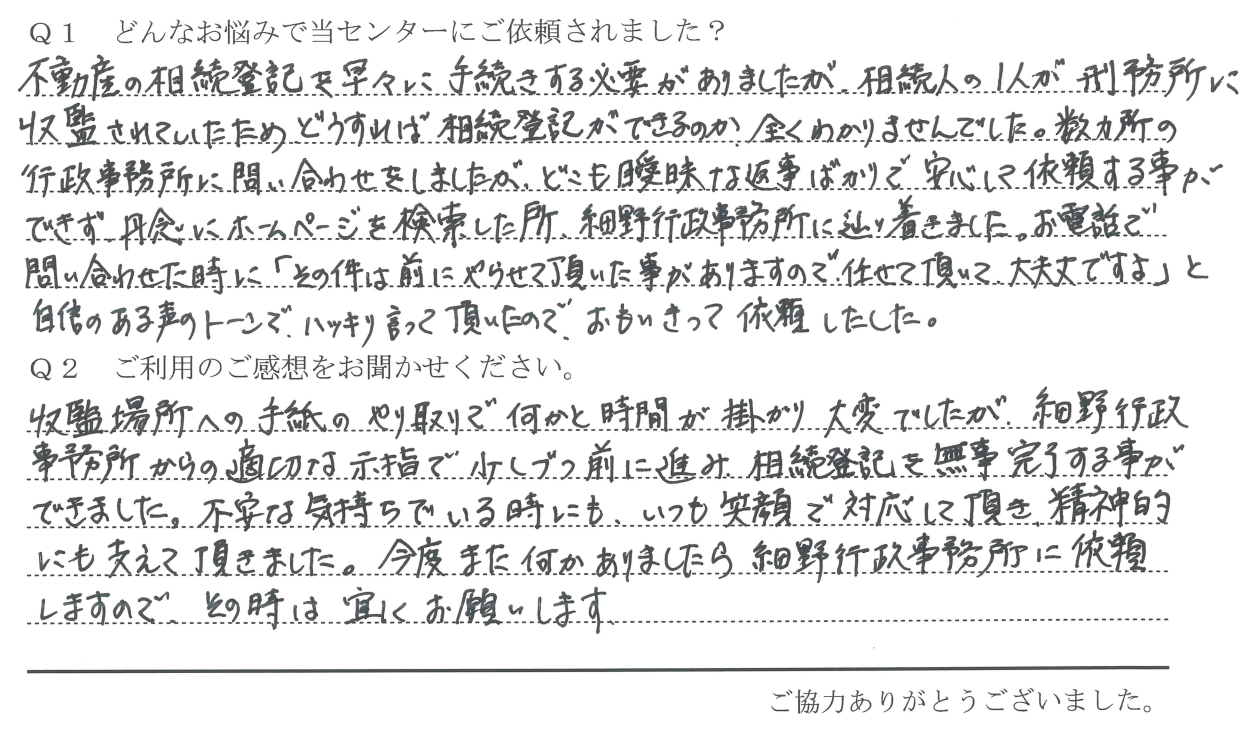 Q1 どんなお悩みで当センターにご依頼されました？
不動産の相続登記を早々に手続きする必要がありましたが、相続人の1人が刑務所に
収監されていたため、どうすれば相続登記ができるのか、全くわかりませんでした。数カ所の
行政事務所に問い合わせをしましたが、どこも曖昧な返事ばかりで安心して依頼する事が
できず、丹念にホームページを検索した所、細野行政事務所に辿り着きました。お電話で
問い合わせた時に「その件は前にやらせて頂いた事がありますので、任せて頂いて、大丈夫ですよ」と
自信のある声のトーンで、ハッキリ言って頂いたので、おもいきって依頼したした。
Q2 ご利用のご感想をお聞かせください。
収監場所への手紙のやり取りで何かと時間が掛かり大変でしたが、細野行政
事務所からの適切な示指で少しづつ前に進み、相続登記を無事完了する事が
できました。不安な気持ちでいる時にも、いつも笑顔で対応して頂き、精神的
にも支えて頂きました。今度また何かありましたら細野行政事務所に依頼
しますので、その時は宜しくお願いします。
ご協力ありがとうございました。